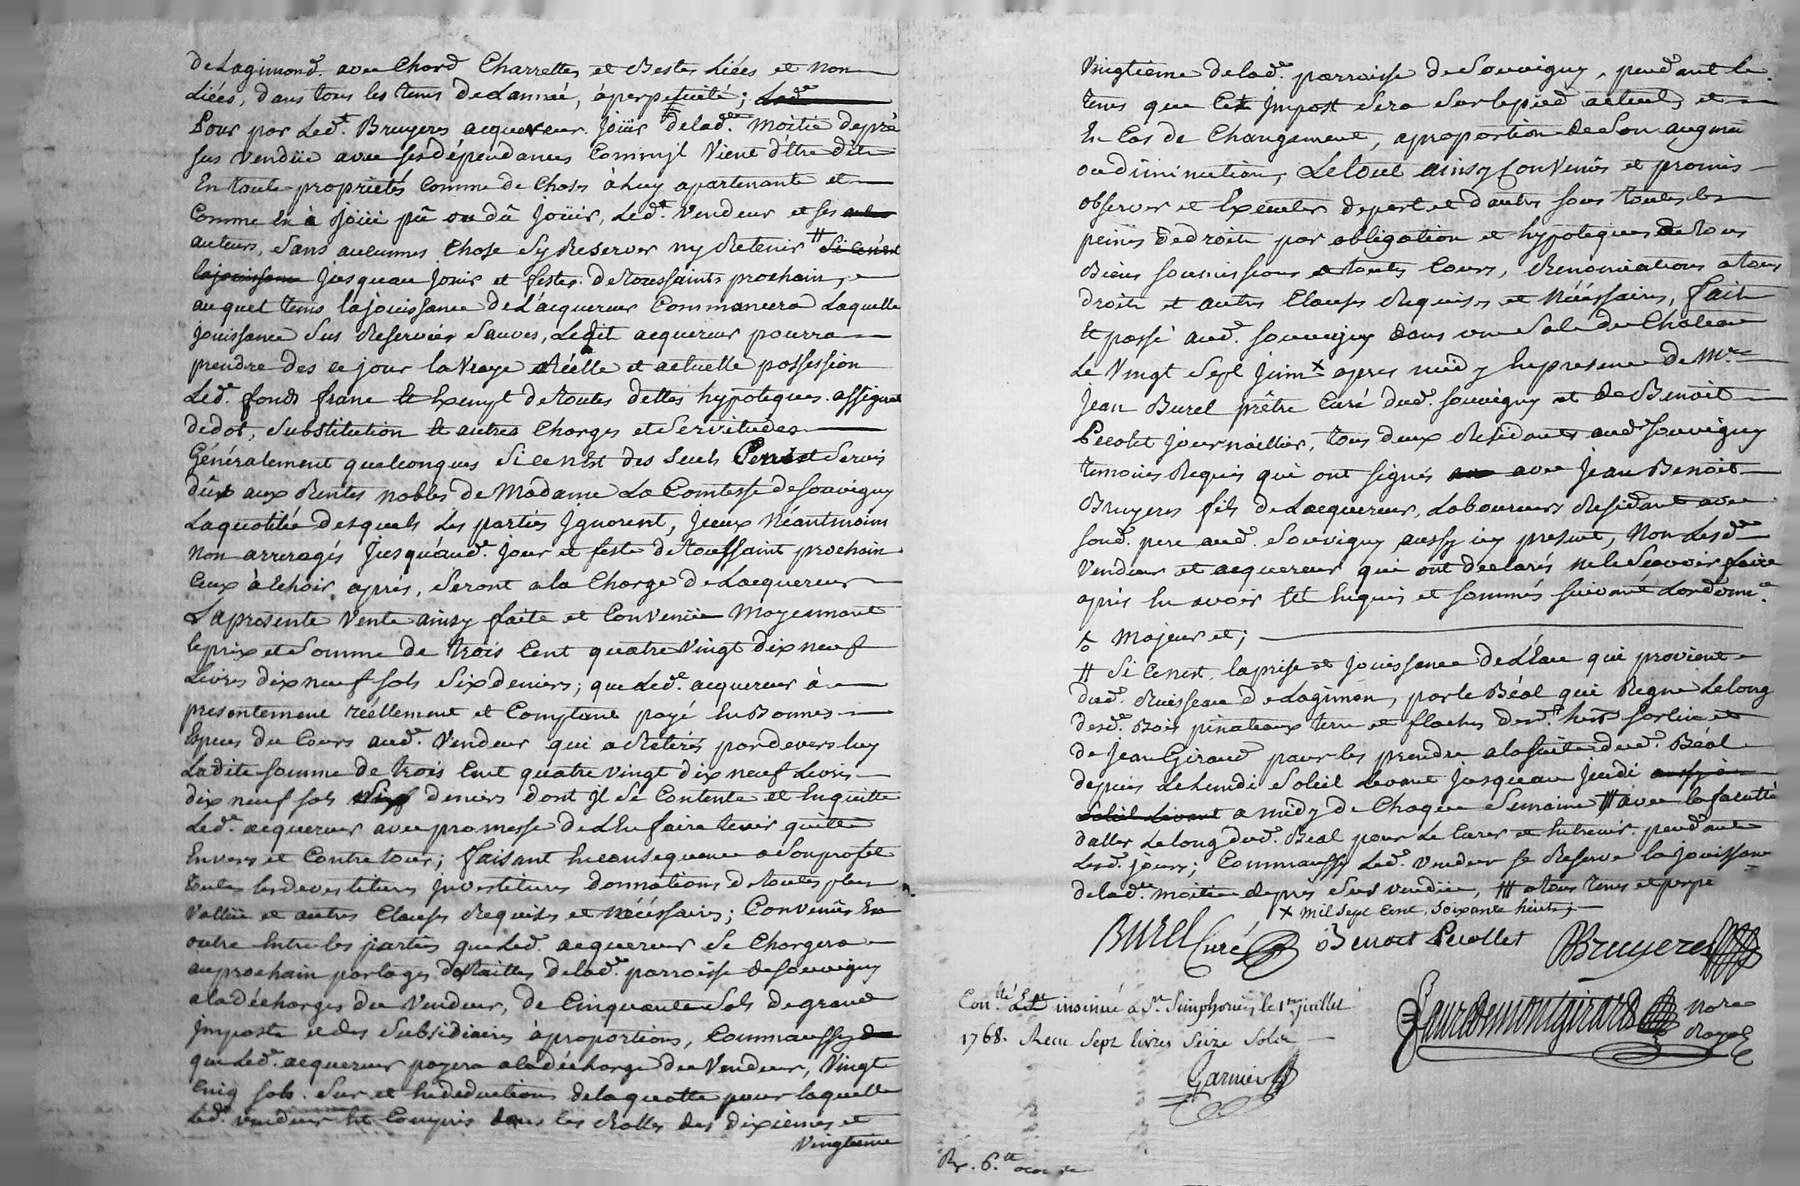 de Lagimond. avec Chard Charrettes et Bestes Liées et non
Liées, dans tous les tems De Lannée, à perpetuité;
Pour par Led.t Bruyeres acquereur joüir de lad.e moitié depré
sus vendüe avec ses dépendances Comm'jl vient d'Etre dit
En toute proprietés Comme de Choses à Luy apartenante et
Comme en à joüi pû ou dû joüir, Led.t vendeur et ses
auteurs, sans aucunnes Chose sy Reserver ny Retenir # si cenest
la jouissance jusquau jour et festes de toussaints prochain,
auquel tems la jouissance de L'acquereur Commancera Laquelle
jouissance sus Reservée sauves, Ledit acquereur pourra
prendre des ce jour la vraye Réelle et actuelle possession
Led.t fonds franc et Exempt de toutes dettes hypoteques. assignat
de dot, substitution et autres Charges et Servitudes
Généralement quelconques si cenest des seuls servis
dûx aux Rentes nobles de Madame La Comtesse de Souvigny
La quotitée desquels Les parties jgnorent, jceux néantmoins
non arreragés jusqu'aud.t jour et feste de toussaint prochain
Ceux à Echoir après, seront a la Charge de Lacquereur
La presente vente ainsy faite et Convenüe moyennant
le prix et somme de trois Cent quatre vingt dix neuf
Livres dix neuf sols six deniers; que Led.t acquereur à
presentement réellement et Comptant payé En Bonnes
Especes du Cours aud.t vendeur qui a Retirés pardevers luy
Ladite somme de trois Cent quatre vingt dix neuf Livres
dix neuf sols six deniers dont jl se Contente et Enquitte
Led.t acquereur avec promesse de L'En faire tenir quitte
Envers et Contre tous; faisant En consequence a son profit
toutes les devestitures jnvestitures donnations de toutes plus
vallüe et autres Clauses Requises et nécéssaires; Convenüs En
outre Entre les parties que Led.t acquereur se Chargera
au prochain partages des tailles de lad.e parroisse de Souvigny
a la décharges du vendeur, de Cinquante sols de grand
jmposte et des subsidiaires à proportions, Comm'aussy
que Led.t acquereur payera a la décharge du vendeur, vingt
Cinq sols sur et En deduction de la quotte pour laquelle
Led.t vendeur Est Compris dans les Rolles des dixiemes et
vingtieme
vingtieme de lad.e parroise de Souvigny, pendant le
tems que Cet jmpost sera sur le pied actuel, et
En Cas de Changement, a proportion de son augm.n
ou diminution, Le tout ainsy Convenûs et promis
observer et Executer depart et d'autre sous toutes les
peines de droits par obligation et hypoteques de tous
Biens soumissions a toutes Cours, Renonciations a tous
droits et autres Clauses Requises et nécéssaires, fait
Et passé aud.t Souvigny dans une Sale du Chateau
Le vingt sept juin x apres midy En presence de M.re
Jean Burel prêtre Curé dud.t Souvigny et de Benoit
Pecollet journaillier, tous deux Residants aud.t Souvigny
temoins Requis qui ont signés avec Jean Benoit
Bruyeres fils de Lacquereur, Laboureur Residant avec
sond.t pere aud.t Souvigny aussy icy present, Non Lesd.ts
vendeur et acquereur qui ont declarés ne le Sçavoir faire
après En avoir Eté Enquis et sommés suivant Lordonn.ce
Majeur et;
# si cenest la prise et jouissance de L'Eau qui provient
dud.t Ruisseau de Lagimon, par le Béal qui Regne Le long
desd.ts Bois pinateaux terre et flaches dud.t
de Jean Giraud pour les prendre a la suite dud.t Béal
depuis Le Lundi soleil Levant jusquau jeudi
a midy de Chaque semaine # avec la faculté
daller Le long dud.t Béal pour Le Curer et Entrenir pendant
Lesd.ts jours; Comm'aussy Led.t vendeur se Reserve la jouissance
de lad.e moitié de pres sus vendüe, # a tous tems et perpe
x mil sept Cent soixante huit;
Burel Curé Benoit Pecollet JBBruyeres
Con.lé et insinué a St. Simphorien le 1.er juillet
1768. Recu sept livres seize sols
Garnier
not.re
Royal